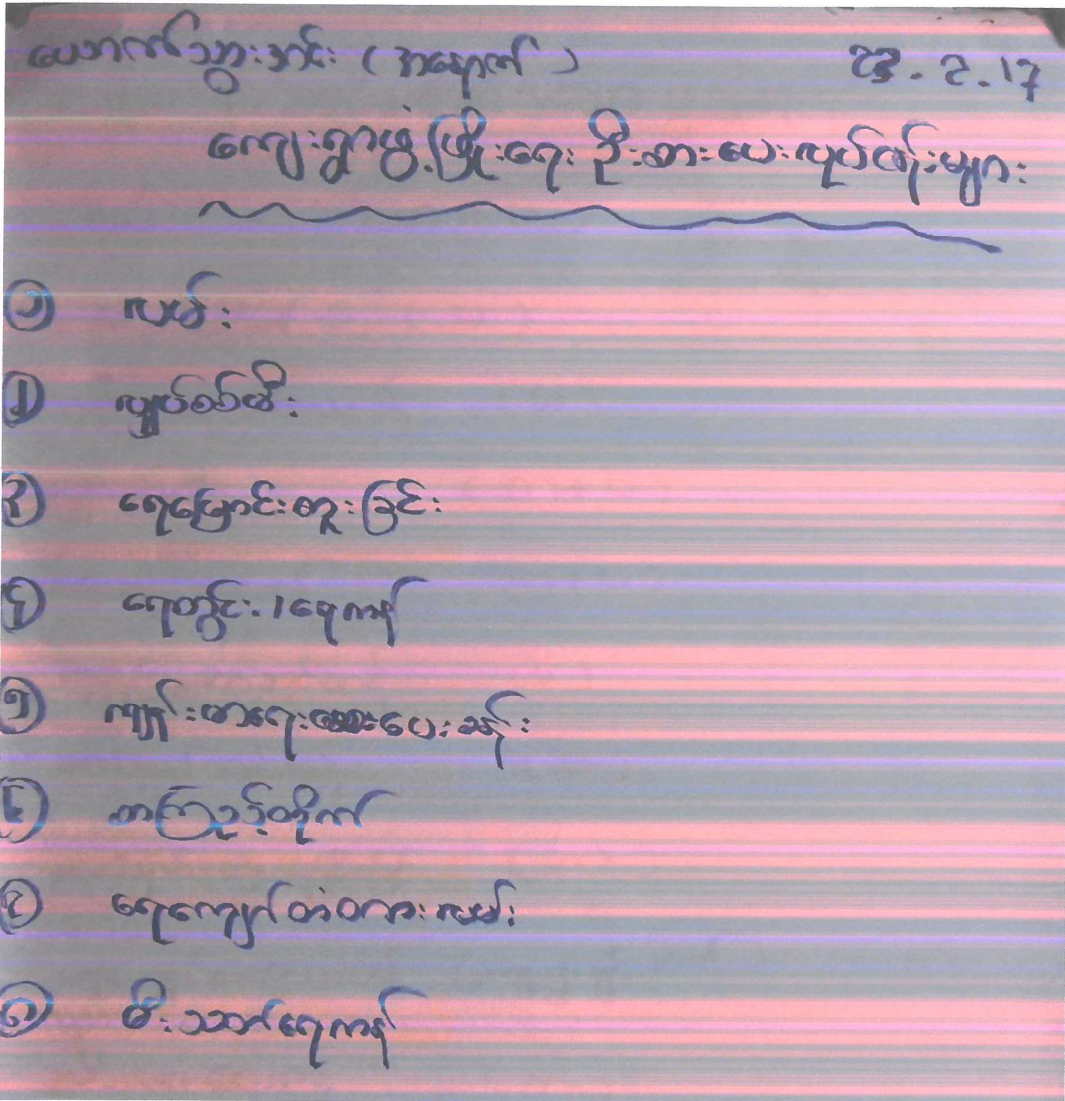 ပေါက်သွားအင်း (အနောက်) 23.2.17
ကျေးရွာဖွံ့ဖြိုးရေး ဦးစားပေးလုပ်ငန်းများ
၁ လမ်း
၂ လျှပ်စစ်မီး
၃ ရေမြောင်းတူးခြင်း
၄ ရေတွင်း/ရေကန်
၅ ကျန်းမာရေးဆေးပေးခန်း
၆ စာကြည့်တိုက်
၇ ရေကျော်တံတားလမ်း
၈ မီးသတ်ရေကန်